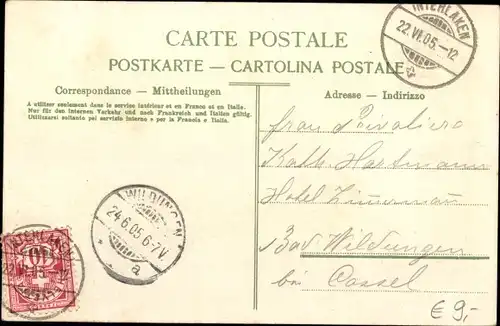 CARTE POSTALE
POSTKARTE — CARTOLINA POSTALE
INTERLAKEN
22.VI.05.–12
Correspondance — Mittheilungen
A utiliser seulement dans le service intérieur et en France et en Italie.
Nur für den internen Verkehr und nach Frankreich und Italien gültig.
Utilizzarsi soltanto pei servizio interno e per la Francia e Italia.
Adresse — Indirizzo
Frau
Käth. Hartmann
Hotel Zimmermann
Bad Wildungen
bei Cassel
WILDUNGEN
24.6.05.6-7V.
a
INTERLAKEN
22.VI.05.–12
10
€ 9,-